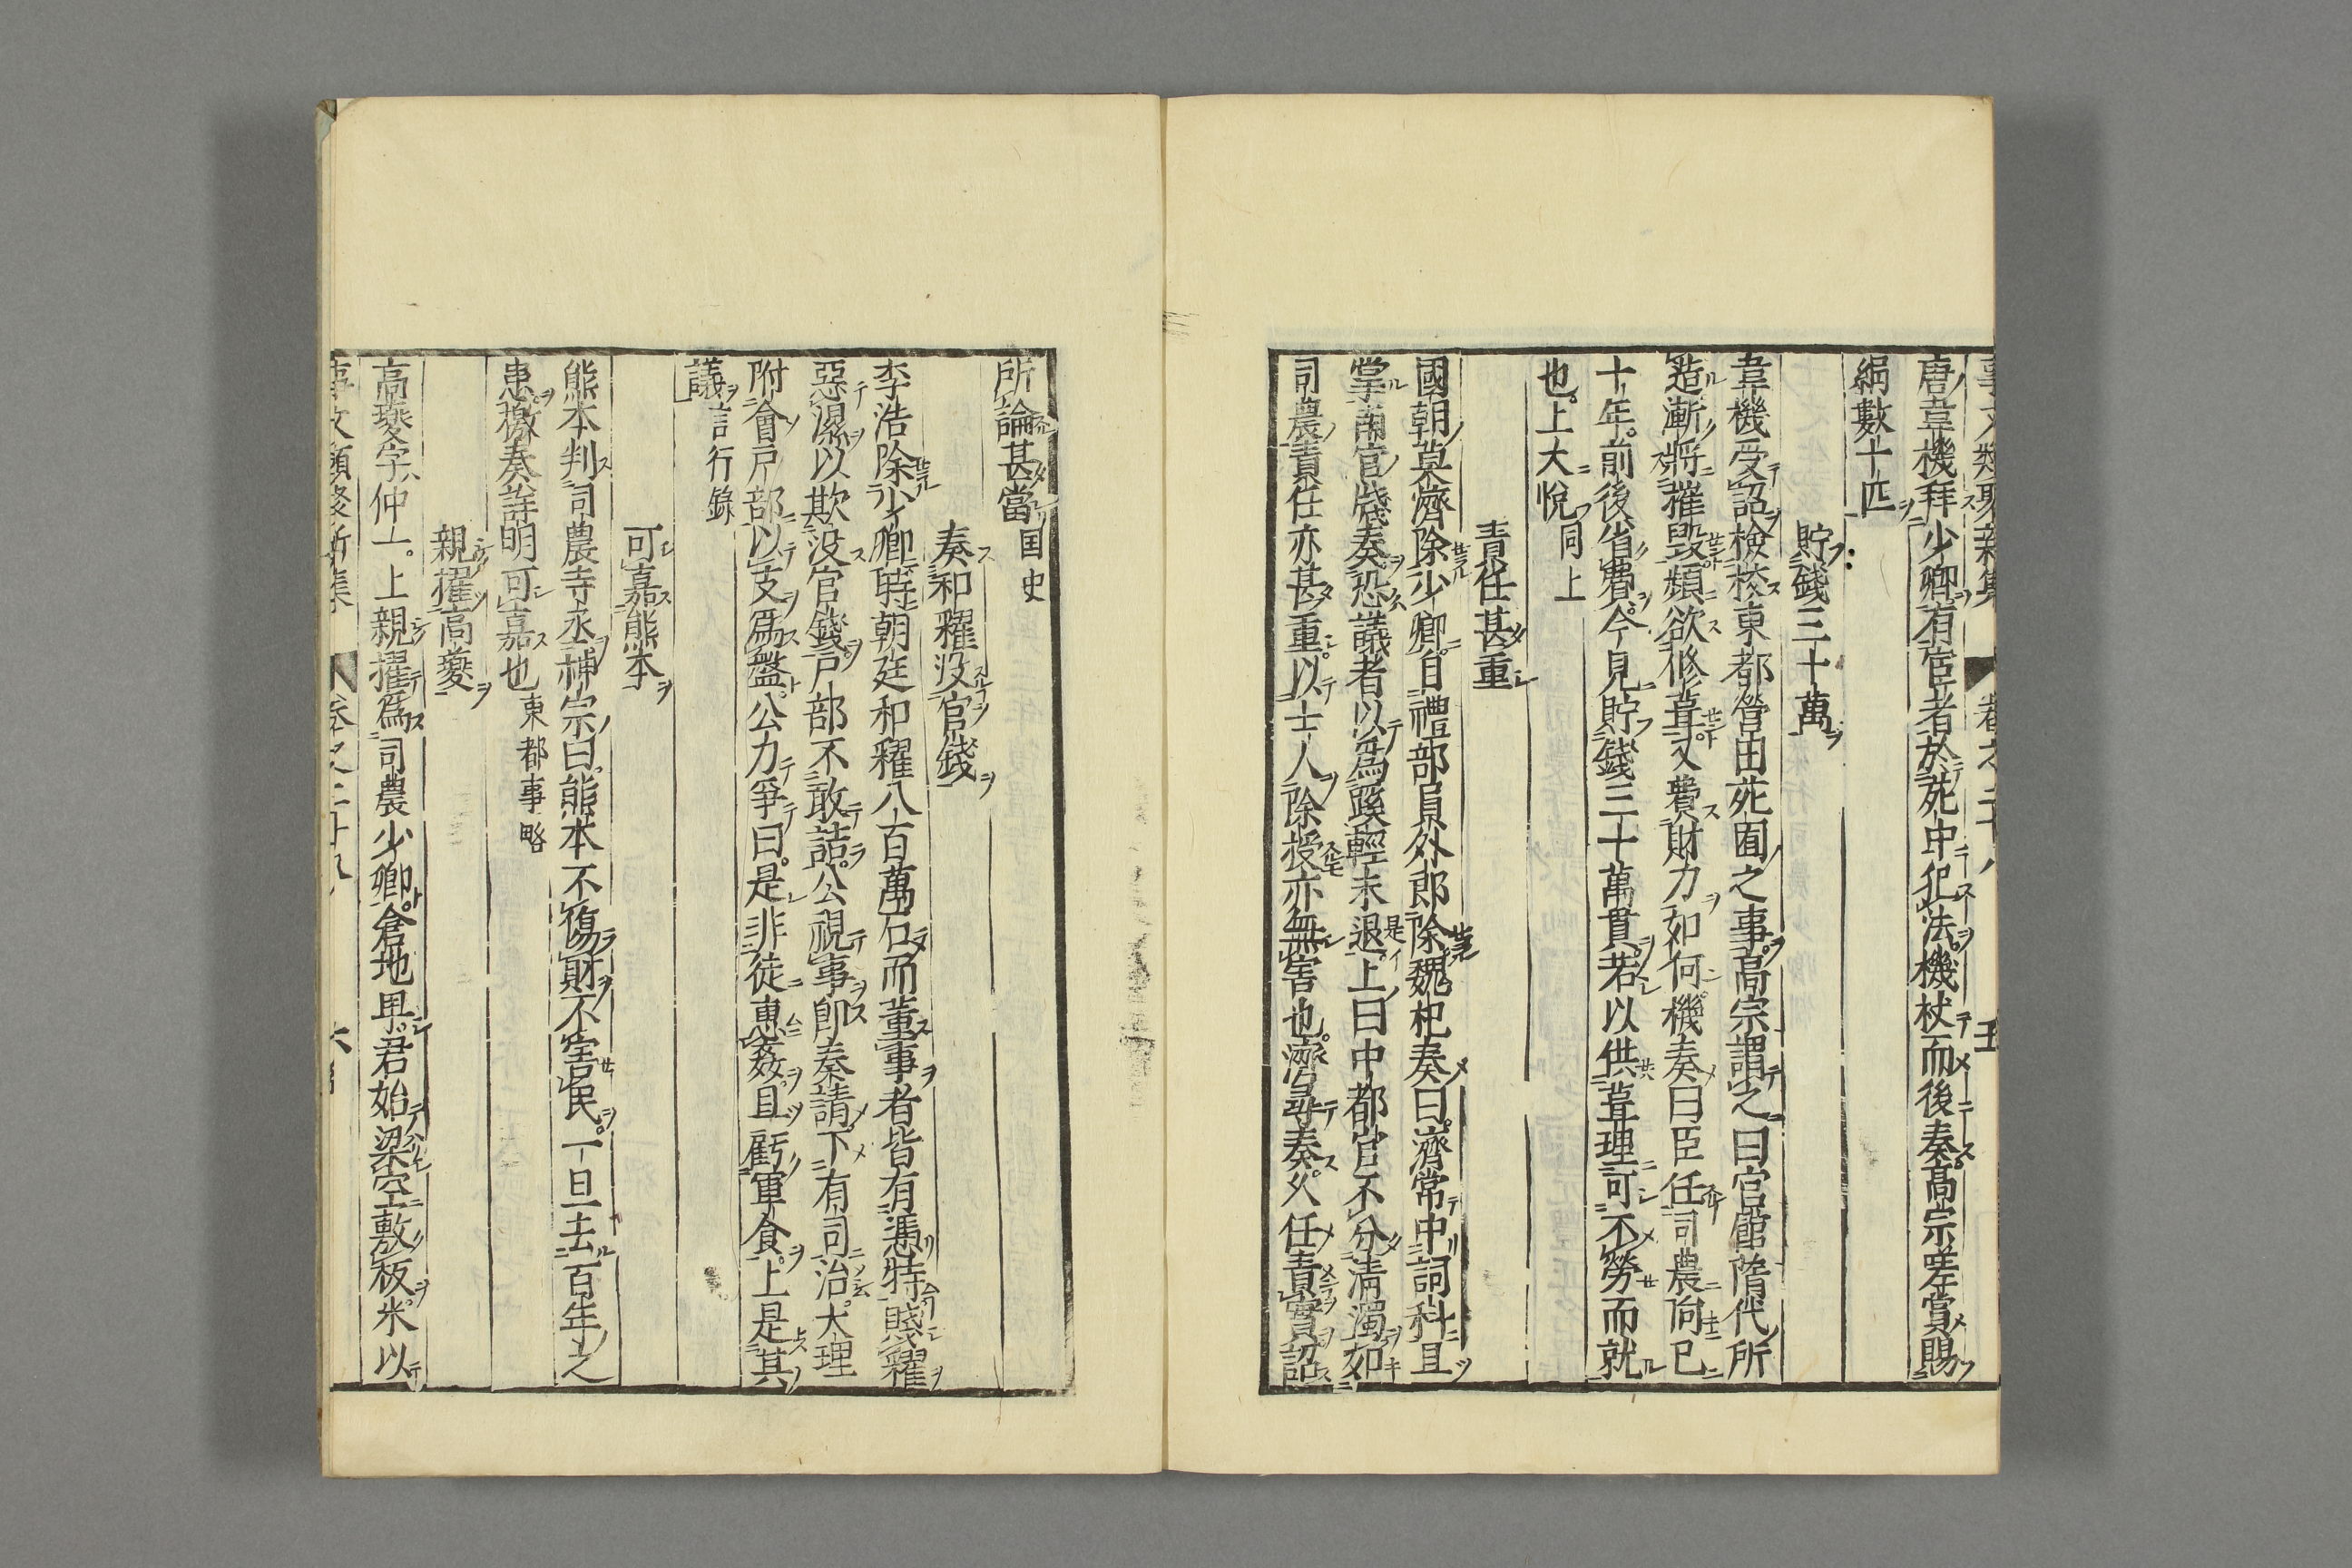 唐韋機拜少卿有宦者於苑中犯法機杖而後奏高宗嗟賞賜
絹數十匹
貯錢三十萬
韋機受詔檢校東都營田苑囿之事高宗謂之曰官館隋代所
造漸將摧毀類欲修葺又費財力如何機奏曰臣任司農向已
十年前後省費今見貯錢三十萬貫若以供葺理可不勞而就
也上大悅同上
責任甚重
國朝莫濟除少卿自禮部員外郎除魏杞奏曰濟常中詞科且
掌南官牋奏恐議者以爲蹊輕未退上曰中都官不分清濁如
司農責任亦甚重以士人除授亦無害也濟尋奏久任責實詔
所論甚當国史
奏和糴没官錢
李浩除少卿時朝廷和糴八百萬石而董事者皆有憑恃賤糴
惡濕以欺没官錢戸部不敢詰公視事卽奏請下有司治大理
附會戸部以支爲盤公力爭曰是非徒惠姦且虧軍食上是其
議言行錄
可嘉熊本
熊本判司農寺丞神宗曰熊本不傷財不害民一旦去百年之
患檄奏詳明可嘉也東都事略
親擢高夔
高夔字仲一上親擢爲司農少卿倉地卑君始梁空敷板米以